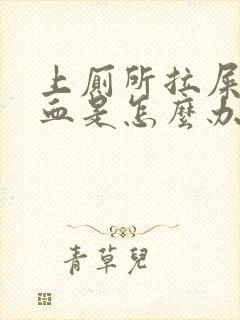 上厕所拉屎
血是怎麼办
青草兒